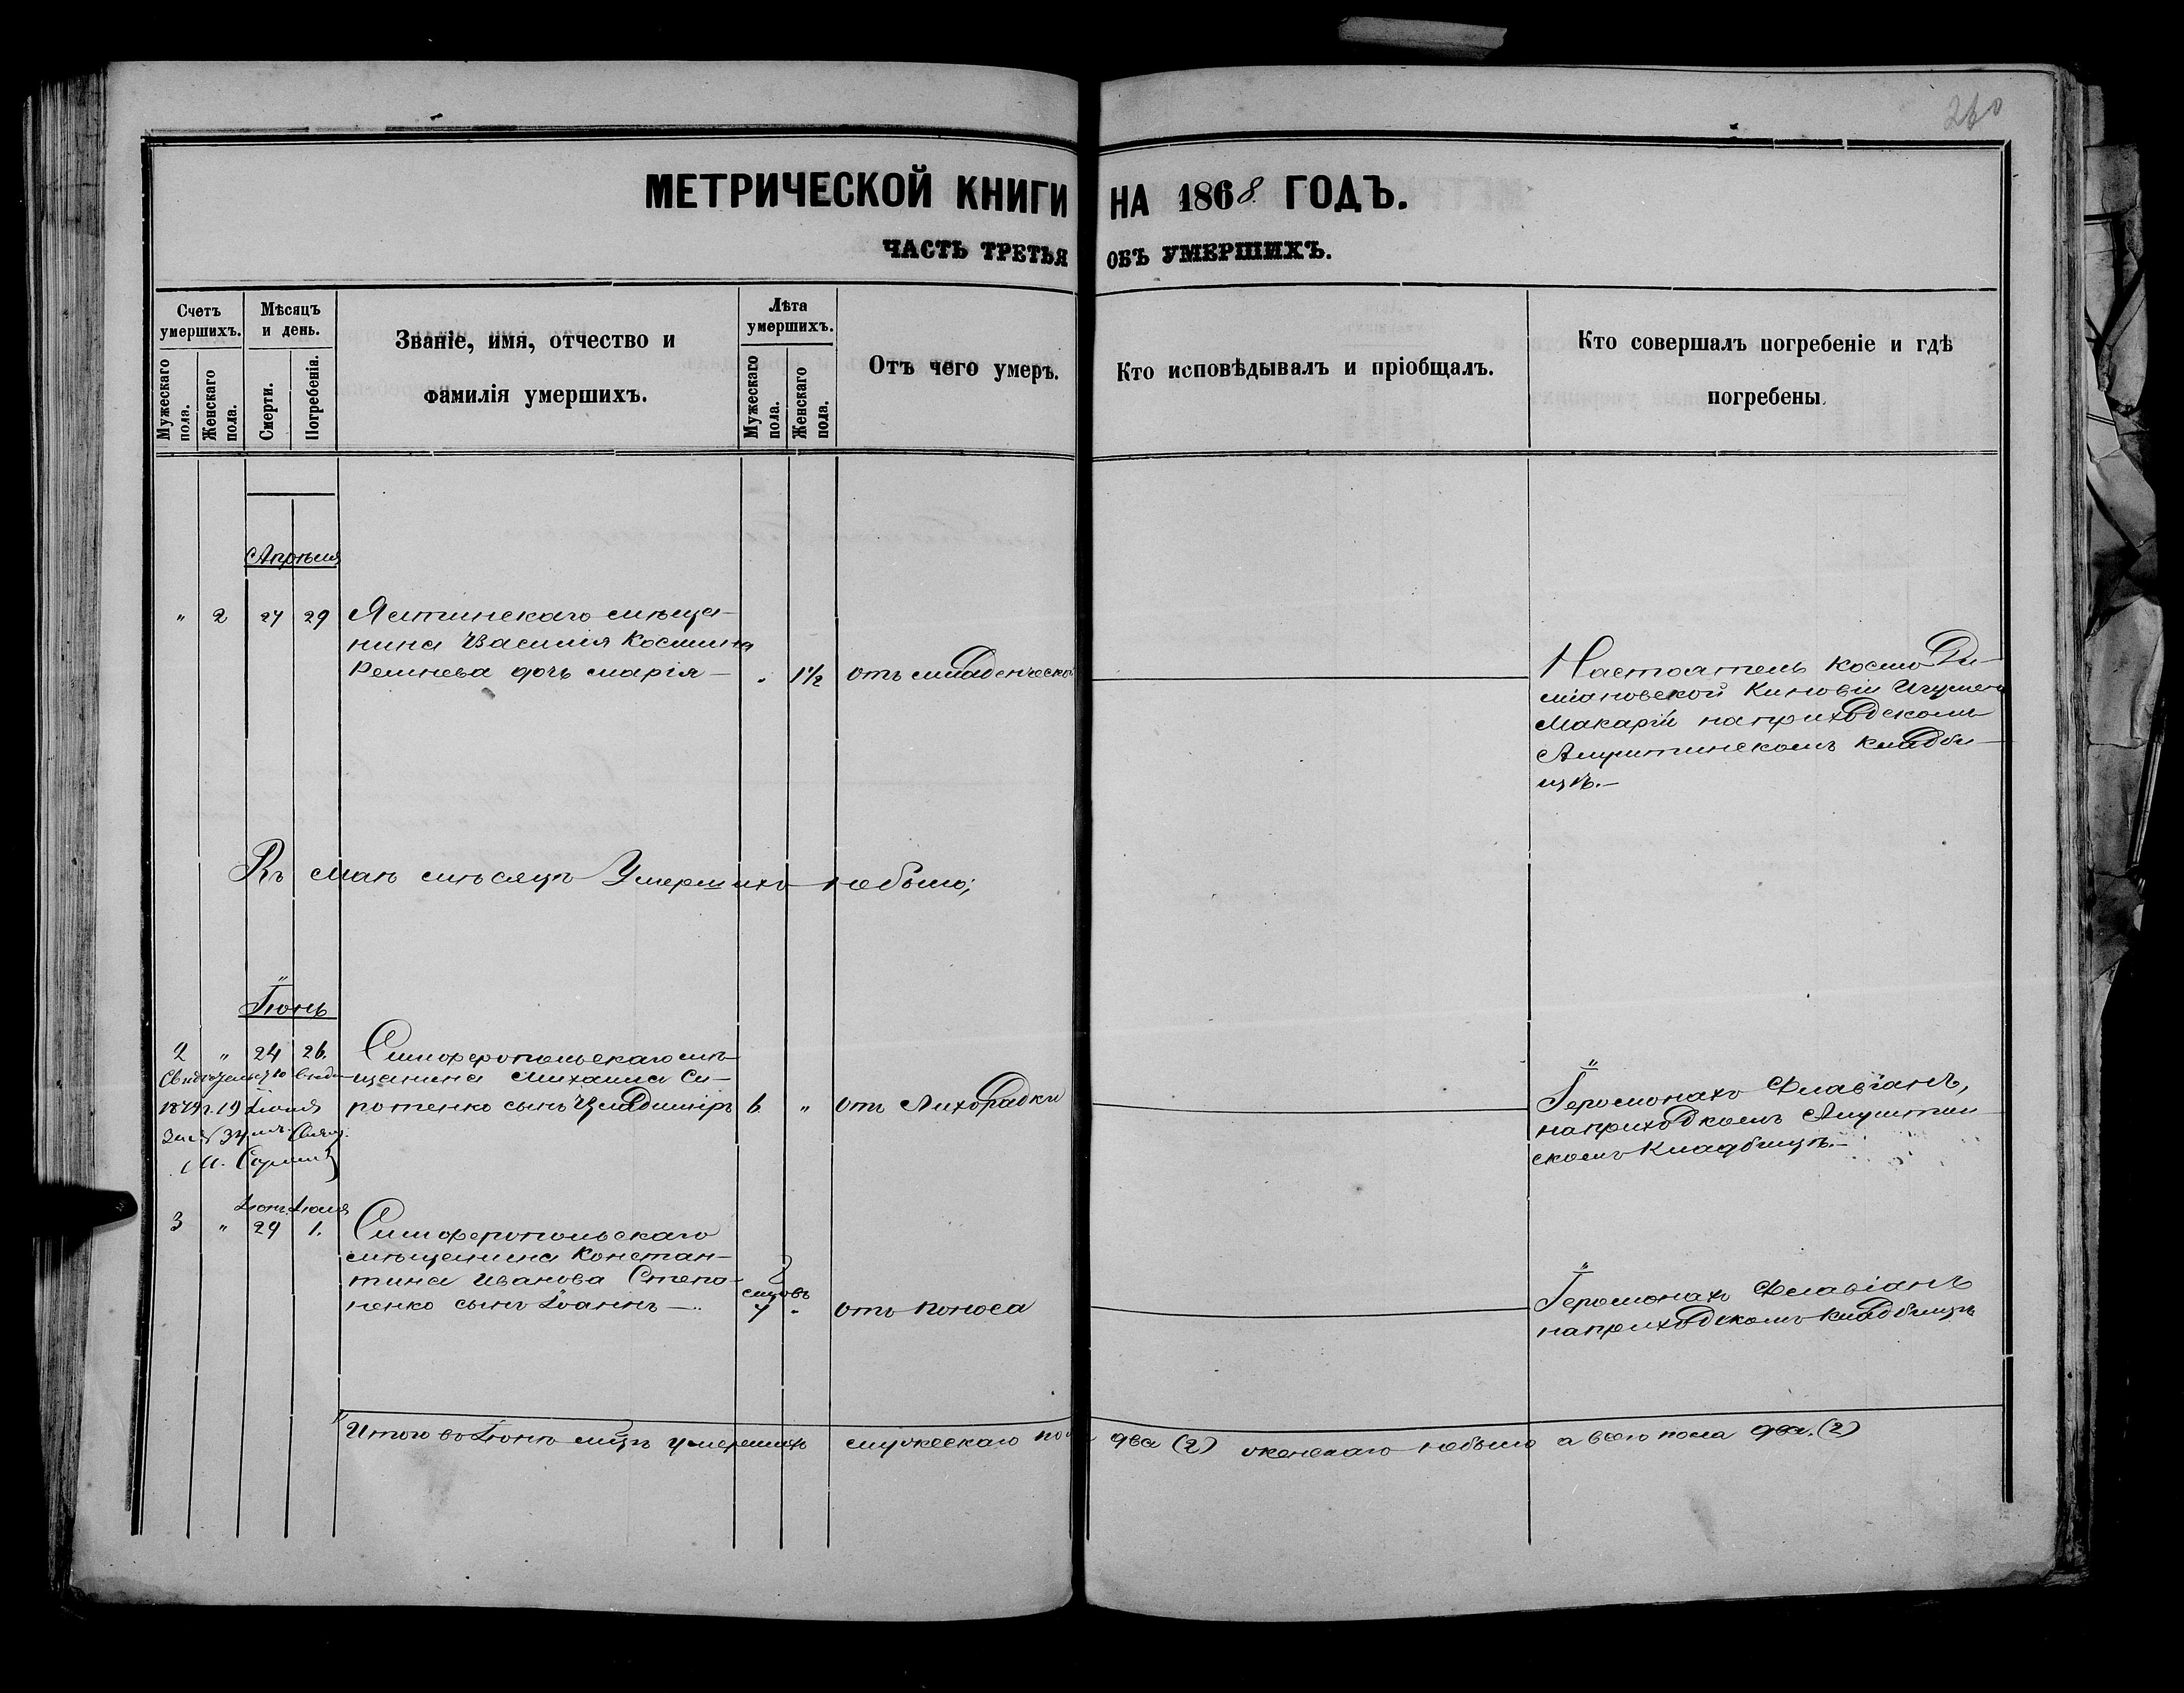 260
МЕТРИЧЕСКОЙ КНИГИ НА 1868 ГОДЪ.
ЧАСТЬ ТРЕТЬЯ ОБЪ УМЕРШИХЪ.
Счетъ умершихъ.
Мужескаго пола.
Женскаго пола.
Мѣсяцъ и день.
Смерти.
Погребенія.
Званіе, имя, отчество и
фамилія умершихъ.
Лѣта умершихъ.
Мужескаго пола.
Женскаго пола.
Отъ чего умеръ.
Кто исповѣдывалъ и пріобщалъ.
Кто совершалъ погребеніе и гдѣ
погребены.
Апрѣля
" 2 27 29 Ялтинскаго мѣща-
нина Василія Космина
дочь Марія — " 1½ отъ младенческой
Настоятель Космо Да-
міановской Киновіи Игумен
Макарій на приходскомъ
Алуштинскомъ кладби-
щѣ.—
Въ Маѣ мѣсяцѣ Умершихъ небыло;
Іюнь
2 " 24 26. Симферопольскаго мѣ-
щанина Михаила Си-
ротенко сынъ Владиміръ 6 " отъ Лихорадки
Іеромонахъ Флавіанъ,
на приходкомъ Алуштин
скомъ Кладбищѣ.—
Свидѣтельство выда-
19 Іюля
Іюн. Іюля
3 " 29 1. Симферопольскаго
мѣщанина Констан-
тина Иванова Степа-
ненко сынъ Іоаннъ — 7 " отъ поноса
Іеромонахъ Флавіанъ
на приходскомъ Кладбищѣ
Итого въ Іюнѣ мцѣ умершихъ мужескаго по два (2) женскаго небыло а всего пола два. (2)